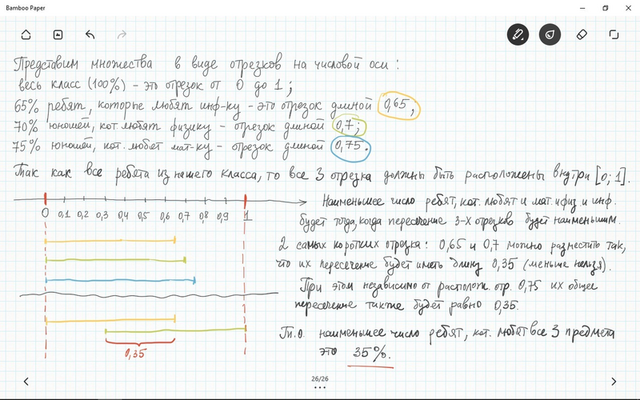 Bamboo Paper
Представим множества в виде отрезков на числовой оси :
весь класс (100%) - это отрезок от 0 до 1 ;
65% ребят, которые любят инф-ку - это отрезок длиной 0,65,
70% юношей, кот. любят физику - отрезок длиной 0,7;
75% юношей, кот. любят мат-ку - отрезок длиной 0,75.
Так как все ребята из нашего класса, то все 3 отрезка должны быть расположены внутри [0; 1].
0 0,1 0,2 0,3 0,4 0,5 0,6 0,7 0,8 0,9 1
Наименьшее число ребят, кот. любят и мат. и физ и инф.
будет тогда, когда пересечение 3-х отрезков будет наименьшим.
2 самых коротких отрезка: 0,65 и 0,7 можно разместить так,
что их пересечение будет иметь длину 0,35 (меньше нельзя).
При этом независимо от располож. отр. 0,75 их общее
пересечение также будет равно 0,35.
Т.о. наименьшее число ребят, кот. любят все 3 предмета
это 35%.
0,35
26/26